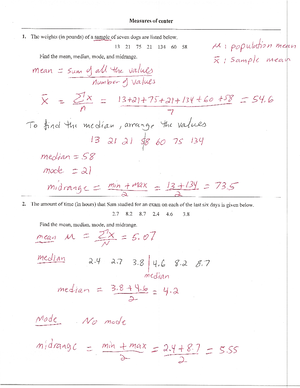 Measures of center
1. The weights (in pounds) of a sample of seven dogs are listed below.
13 21 75 21 134 60 58
μ : population mean
Find the mean, median, mode, and midrange.
x̄ : sample mean
mean = sum of all the values / number of values
x̄ = Σx / n = 13+21+75+21+134+60+58 / 7 = 54.6
To find the median, arrange the values
13 21 21 58 60 75 134
median = 58
mode = 21
midrange = min + max / 2 = 13+134 / 2 = 73.5
2. The amount of time (in hours) that Sam studied for an exam on each of the last six days is given below.
2.7 8.2 8.7 2.4 4.6 3.8
Find the mean, median, mode, and midrange.
mean μ = Σx / N = 5.07
median 2.4 2.7 3.8 | 4.6 8.2 8.7
median
median = 3.8 + 4.6 / 2 = 4.2
Mode No mode
midrange = min + max / 2 = 2.4+8.7 / 2 = 5.55